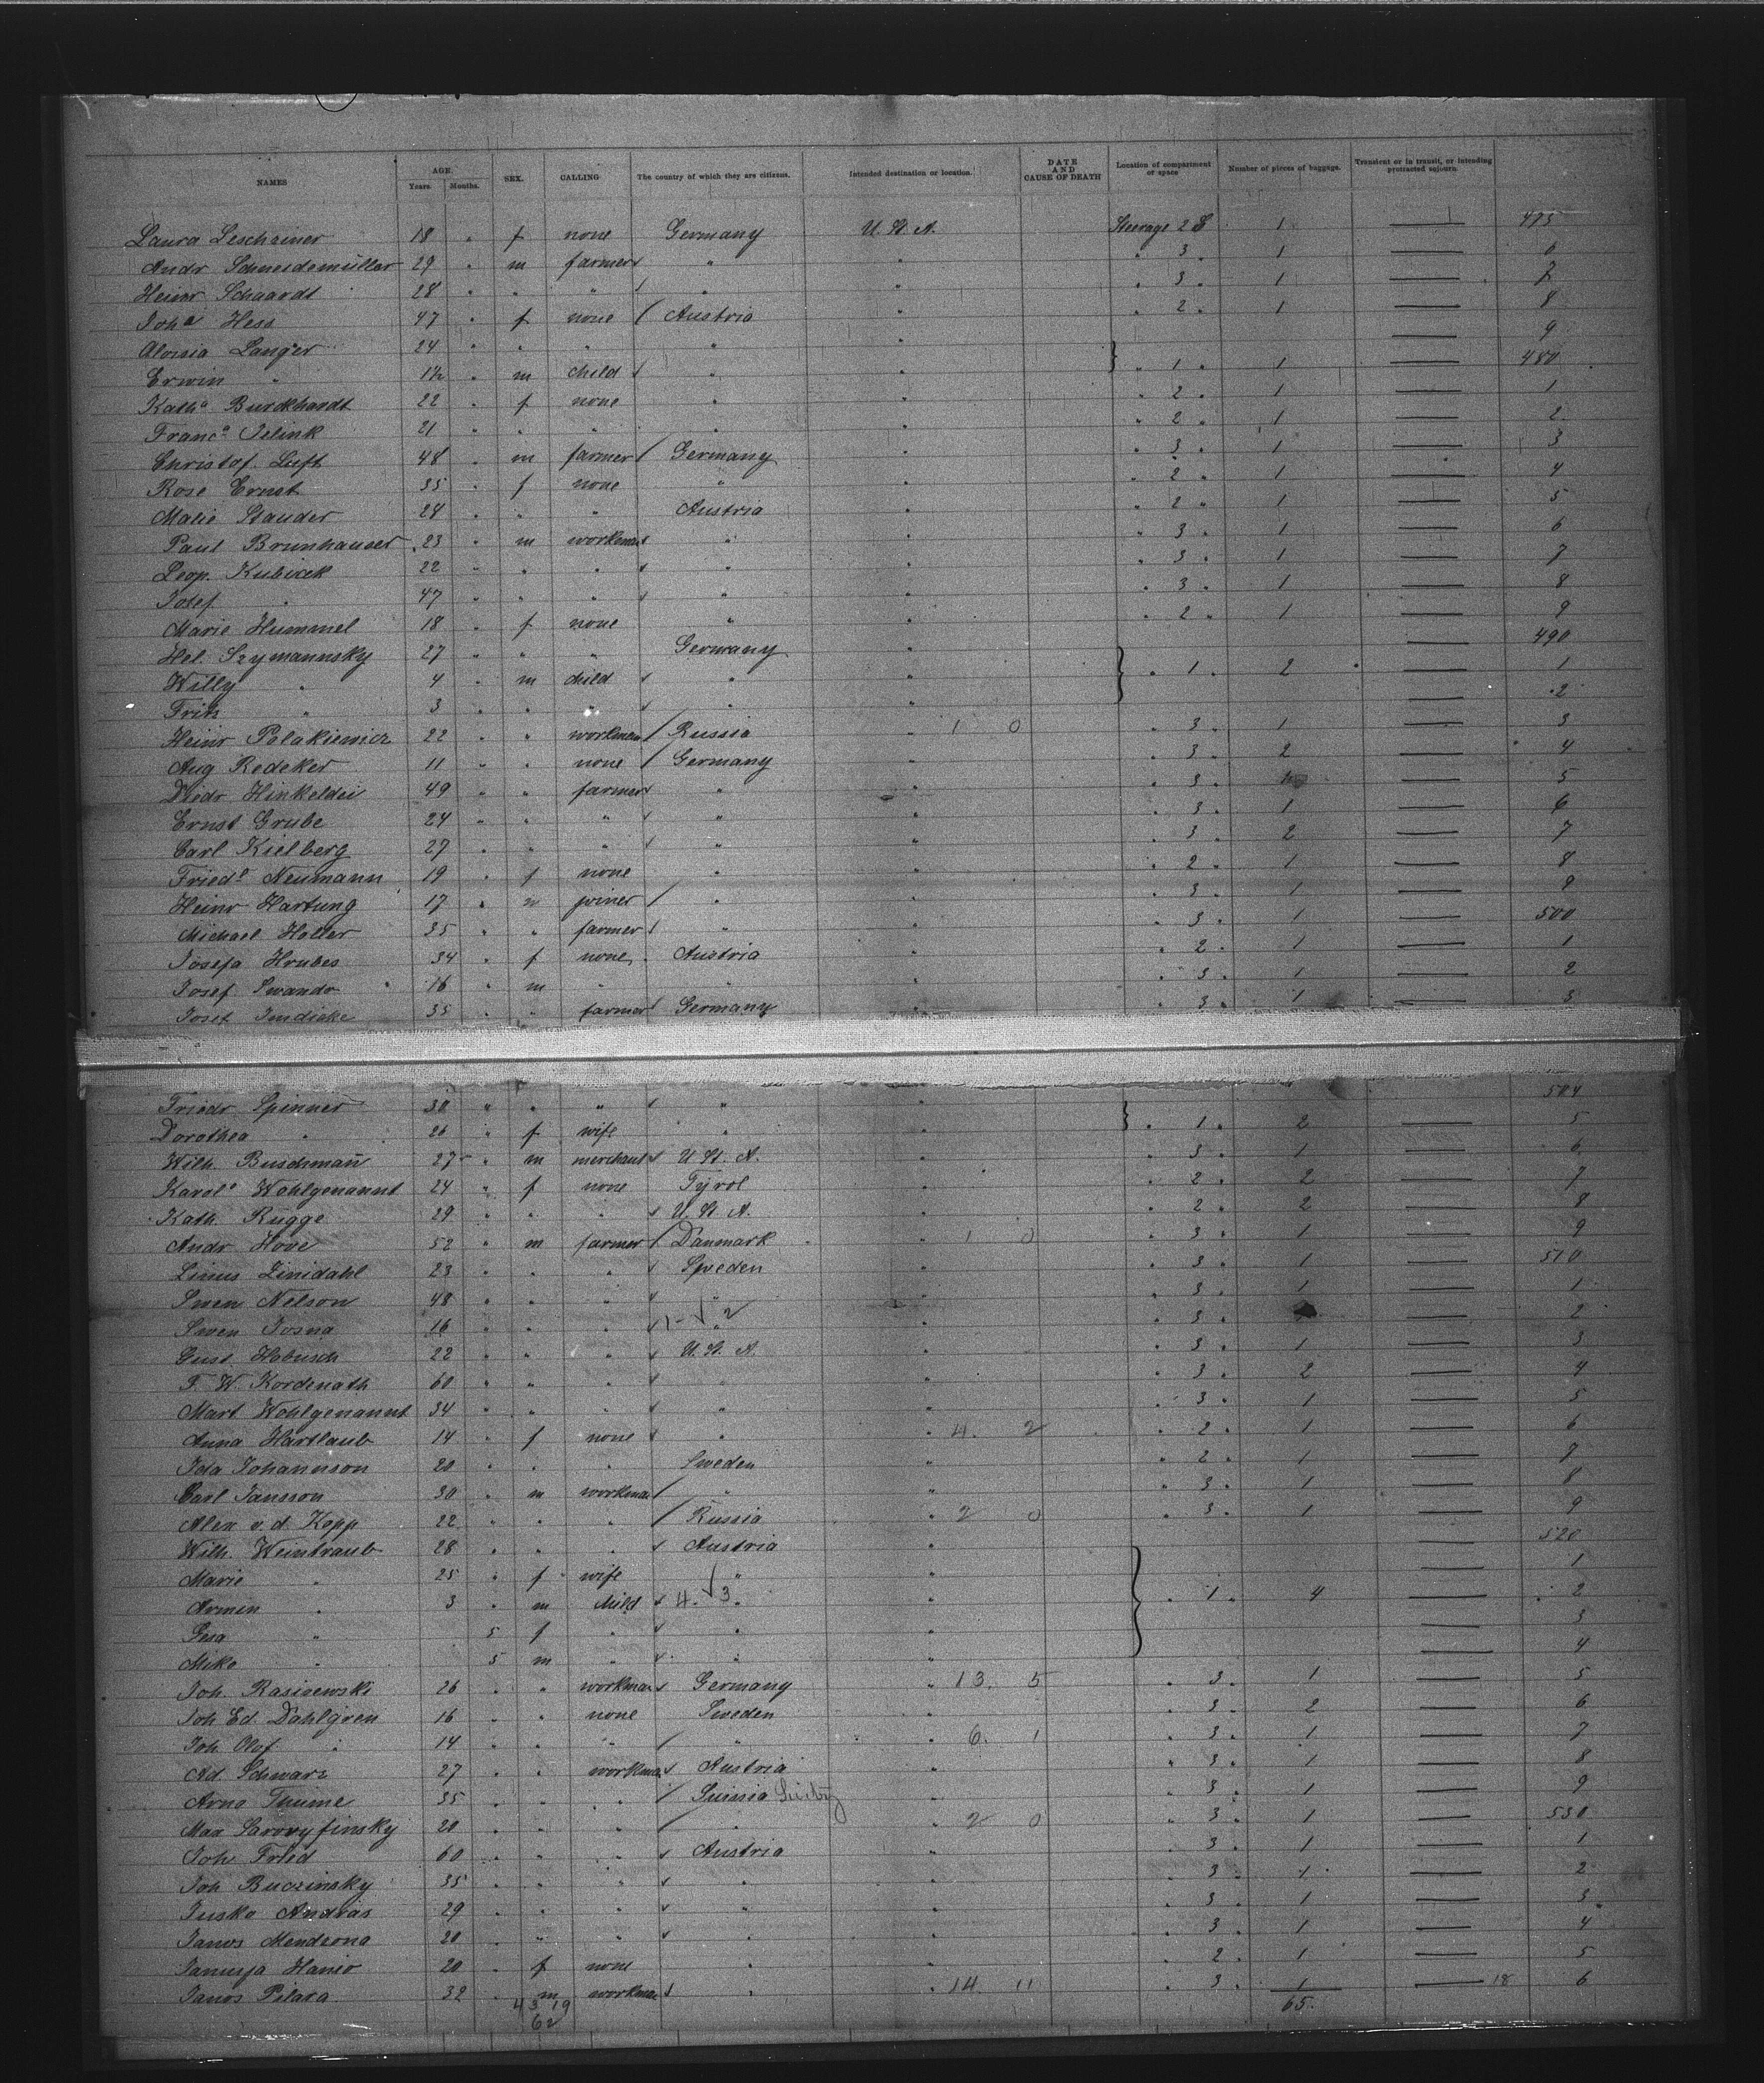 NAMES AGE Years. Months. SEX. CALLING The country of which they are citizens. Intended destination or location. DATE AND CAUSE OF DEATH Location of compartment or space Number of pieces of baggage. Transient or in transit, or intending protracted sojourn
Laura Leschziner 18 " f none Germany U. St. A. Steerage 2 S 1 — 475
Andr Schneidemüller 29 " m farmer " " " 3 " 1 — 6
Heinr Schaardt 28 " " " " " " 3 " 1 — 7
Joha Hess 47 " f none Austria " " 2 " 1 — 8
Aloisia Langer 24 " " " " " — 9
Erwin " 1½ " m child " " " 1 " 1 — 480
Katha Burckhardt 22 " f none " " " 2 " 1 — 1
Franca Jelink 21 " " " " " " 2 " 1 — 2
Christof Luft 48 " m farmer Germany " " 3 " 1 — 3
Rose Ernst 35 " f none " " " 2 " 1 — 4
Malie Stauder 28 " " " Austria " " 2 " 1 — 5
Paul Brunhauser 23 " m workman " " " 3 " 1 — 6
Leop. Kubicek 22 " " " " " " 3 " 1 — 7
Josef " 47 " " " " " " 3 " 1 — 8
Marie Hummel 18 " f none " " " 2 " 1 — 9
Hel. Szymannsky 27 " " " Germany " — 490
Willy " 4 " m child " " " 1 " 2 — 1
Fritz " 3 " " " " " — 2
Heinr Polakiewicz 22 " " workman Russia " 1 0 " 3 " 1 — 3
Aug Redeker 11 " " none Germany " " 3 " 2 — 4
Diedr Hinkeldei 49 " " farmer " " " 3 " — 5
Ernst Grube 24 " " " " " " 3 " 1 — 6
Carl Kielberg 27 " " " " " " 3 " 2 — 7
Friede Neumann 19 " f none " " " 2 " 1 — 8
Heinr Hartung 17 " m joiner " " " 3 " 1 — 9
Michael Holler 35 " " farmer " " " 3 " 1 — 500
Josefa Hrubes 34 " f none Austria " " 2 " 1 — 1
Josef Swando 16 " m " " " " 3 " 1 — 2
Josef Jendiake 35 " " farmer Germany " " 3 " 1 — 3
Friedr Spinner 30 " " " " " 504
Dorothea " 26 " f wife " " " 1 " 2 — 5
Wilh Buschman̄ 27 " m merchant U. St. A. " " 3 " 1 — 6
Karola Wohlgenannt 24 " f none Tyrol " " 2 " 2 — 7
Kath Rugge 29 " " " U. St. A. " " 2 " 2 — 8
Andr Hove 52 " m farmer Danmark " 1 0 " 3 " 1 — 9
Linus Linidahl 23 " " " Sweden " " 3 " 1 — 510
Swen Nelson 48 " " " " " " 3 " 1 — 1
Swen Josua 16 " " " 1 - 2 " " 3 " — 2
Gust. Hobusch 22 " " " U. St. A. " " 3 " 1 — 3
F. W. Kordenath 60 " " " " " " 3 " 2 — 4
Mart Wohlgenannt 34 " " " " " " 3 " 1 — 5
Anna Hartlaub 14 " f none " " 4. 2 " 2 " 1 — 6
Ida Johannson 20 " " " Sweden " " 2 " 1 — 7
Carl Jansson 30 " m workman " " " 3 " 1 — 8
Alex v. d. Kopp 22 " " " Russia " 2 0 " 3 " 1 — 9
Wilh. Weintraub 28 " " " Austria " 520
Marie " 25 " f wife " " — 1
Armin " 3 " m child 4. 3 " " " 1 " 4 — 2
Gesa " 5 f " " " — 3
Miko " 5 m " " " — 4
Joh. Rasigewski 26 " " workman Germany " 13. 5 " 3 " 1 — 5
Joh Ed. Dahlgren 16 " " none Sweden " " 3 " 2 — 6
Joh Olof " 14 " " " " " 6. 1 " 3 " 1 — 7
Ad. Schwarz 27 " " workman Austria " " 3 " 1 — 8
Arno Thume 35 " " " " " 3 " 1 — 9
Max 20 " " " " " 2 0 " 3 " 1 — 530
Joh Fried 60 " " " Austria " " 3 " 1 — 1
Joh Buczinsky 35 " " " " " " 3 " 1 — 2
Jusko Andras 29 " " " " " " 3 " 1 — 3
Janos Mendrona 20 " " " " " " 3 " 1 — 4
Janusja Hanio 20 " f none " " " 2 " 1 — 5
Janos Pilara 32 " m workman " " 14. 11 " 3 " 1 — 18 6
43 19 65.
62